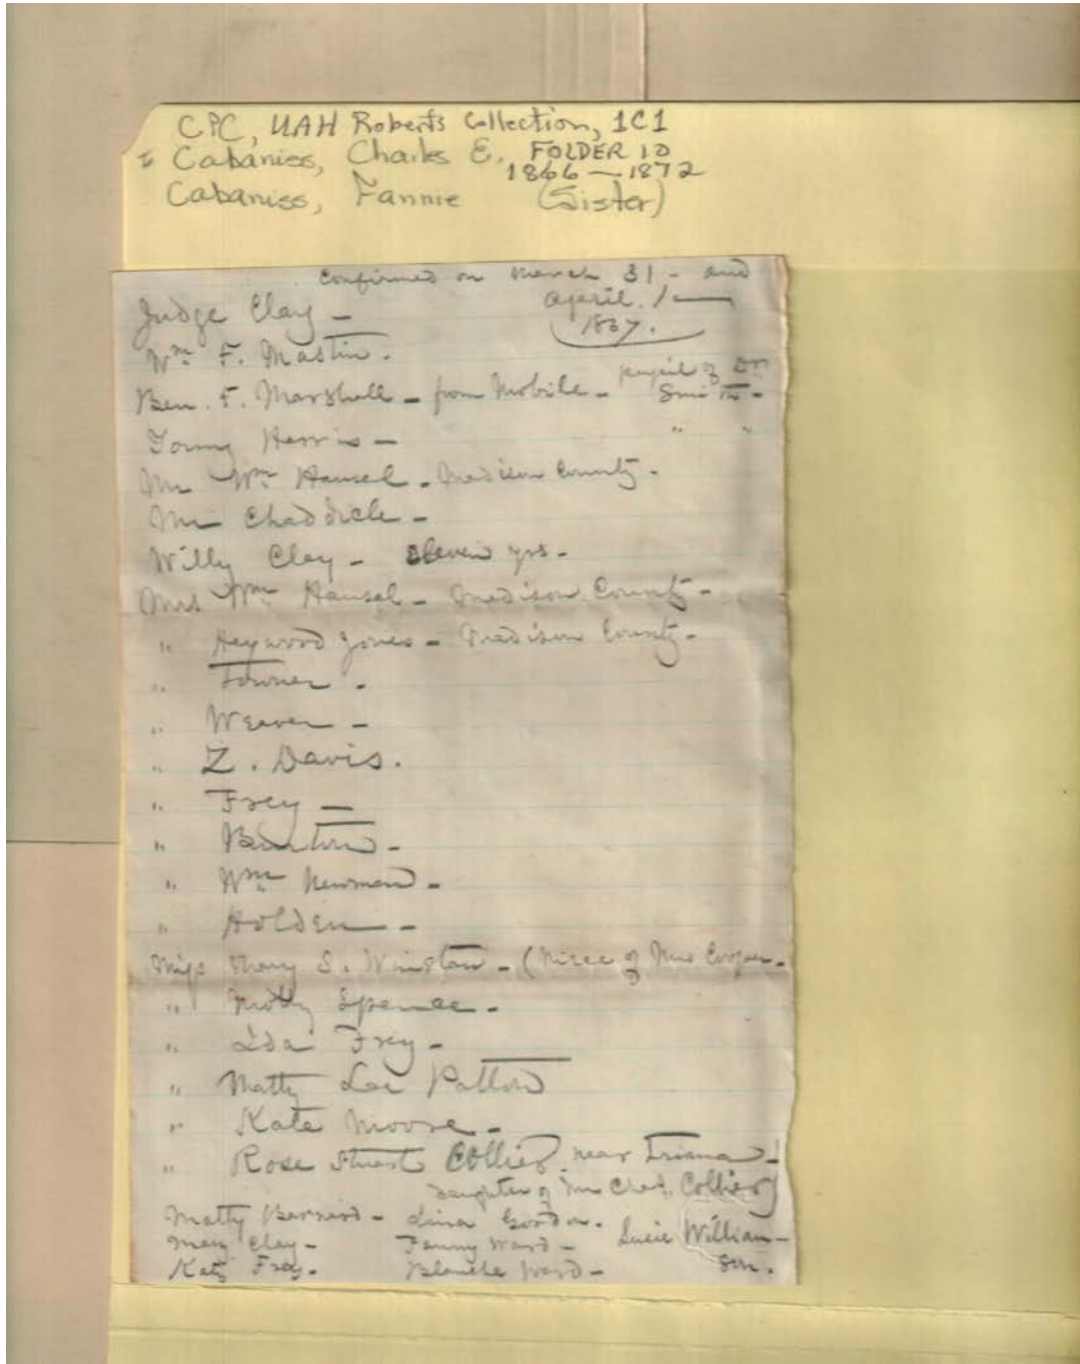 CPC, UAH Roberts Collection, 1C1
Cabaniss, Charles E. FOLDER 10
1866 — 1872
Cabaniss, Fannie (Sister)
Confirmed on March 31 - and
Judge Clay - April 1 —
1867.
Wm F. Mastin.
Ben. F. Marshall - from Mobile - pupil of Dr
Smith -
Harris - " "
Mr Wm Hansel - Madison County -
Mr Chaddick -
Willy Clay - eleven yrs -
Mrs Wm Hansel - Madison County -
" Heywood Jones - Madison County -
" Towner .
" Weaver -
" Z. Davis.
" Frey —
" -
" Wm Newman -
" Holden -
Miss Mary S. Winston - (Niece of Mrs Cooper -
" Molly Spence -
" Ida Frey -
" Matty Lee Patton
" Kate Moore -
" Rose Stuart Collier, near Triana -
daughter of Mr Chas. Collier)
Matty Barnard - Lina Gordon. Lucie William-
Mary Clay - Fanny Ward - son.
Katy Frey - Blanche Ward -